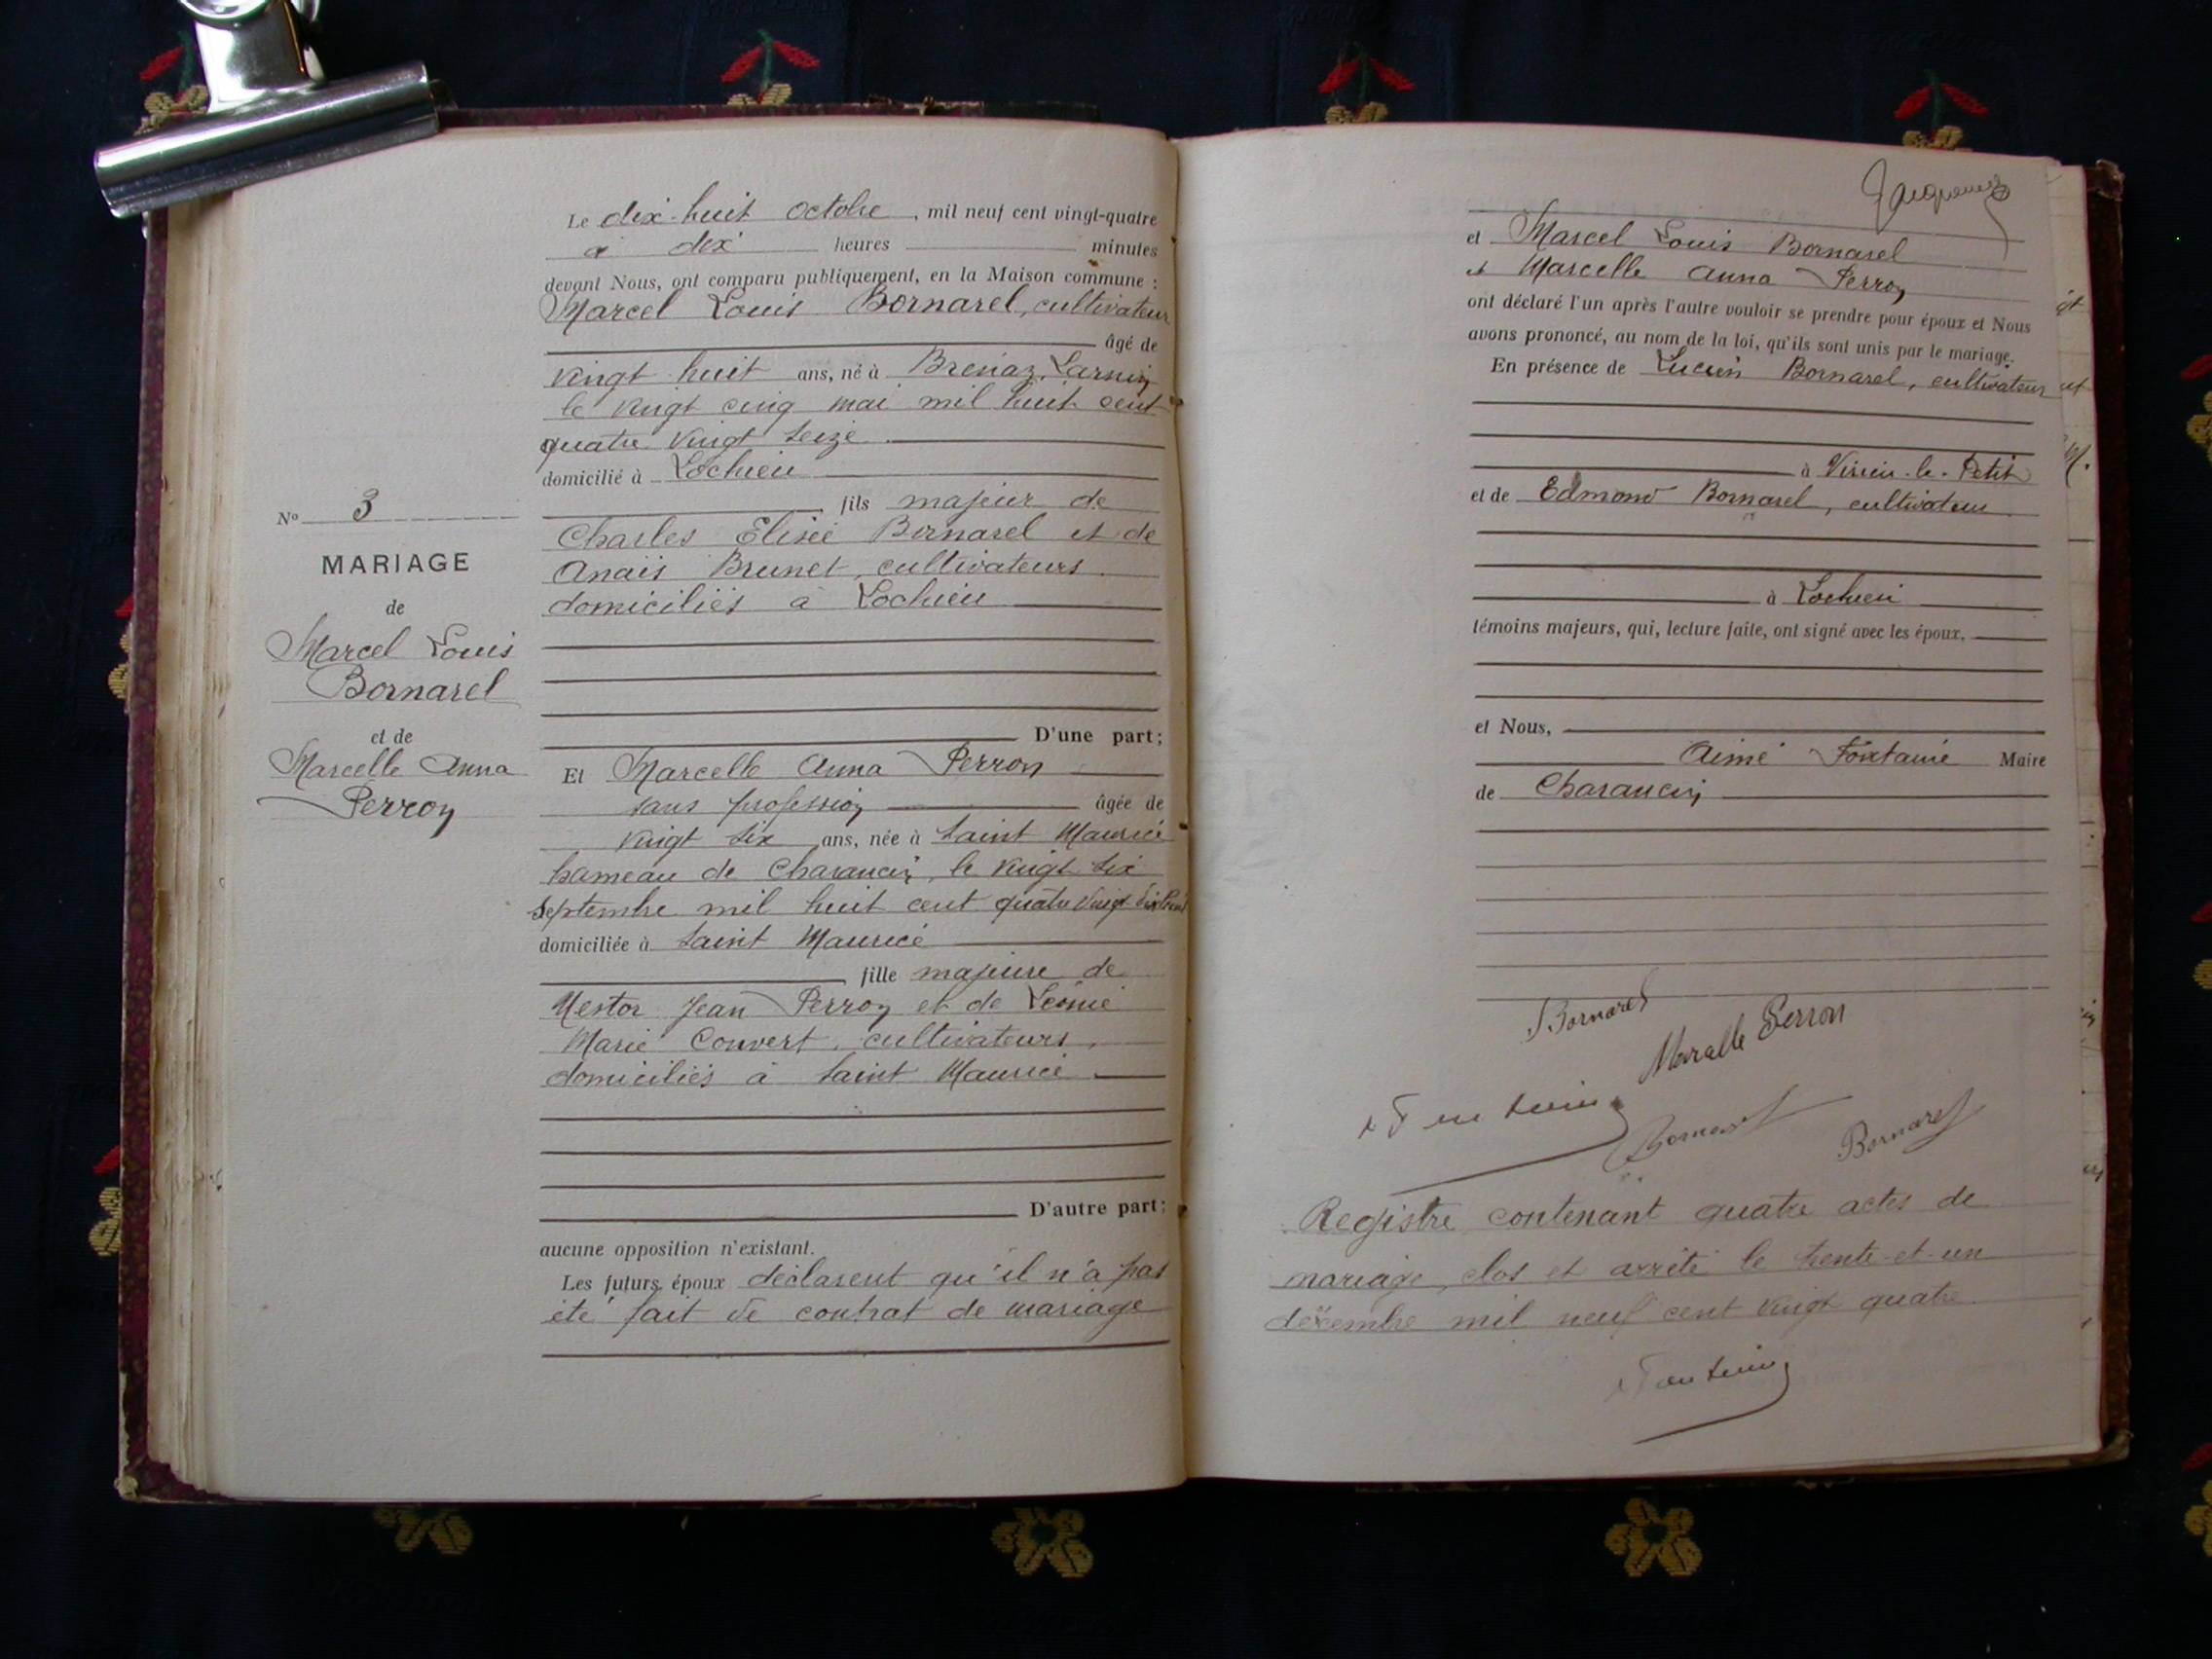 Le dix-huit octobre, mil neuf cent vingt-quatre
à dix heures minutes
devant Nous, ont comparu publiquement, en la Maison commune :
Marcel Louis Bornarel, cultivateur
âgé de
vingt huit ans, né à Brénaz,
le vingt cinq mai mil huit cent
quatre vingt seize
domicilié à Lochieu
fils majeur de
Charles Elisée Bornarel et de
Anaïs Brunet, cultivateurs
domiciliés à Lochieu
D'une part;
Nº 3
MARIAGE
de
Marcel Louis
Bornarel
et de
Marcelle Anna
Perron
Et Marcelle Anna Perron
sans profession âgée de
vingt six ans, née à Saint Maurice
hameau de Charancin, le vingt six
septembre mil huit cent quatre vingt dix huit
domiciliée à Saint Maurice
fille majeure de
Nestor Jean Perron et de Léonie
Marie Convert, cultivateurs,
domiciliés à Saint Maurice
D'autre part;
aucune opposition n'existant.
Les futurs époux déclarent qu'il n'a pas
été fait de contrat de mariage
et Marcel Louis Bornarel
et Marcelle Anna Perron
ont déclaré l'un après l'autre vouloir se prendre pour époux et Nous
avons prononcé, au nom de la loi, qu'ils sont unis par le mariage.
En présence de Lucien Bornarel, cultivateur
à Virieu-le-Petit
et de Edmond Bornarel, cultivateur
à Lochieu
témoins majeurs, qui, lecture faite, ont signé avec les époux,
et Nous,
Aimé Fontaine Maire
de Charancin
Bornarel
Marcelle Perron
Fontaine
Bornarel Bornarel
Registre contenant quatre actes de
mariage, clos et arrêté le trente-et-un
décembre mil neuf cent vingt quatre
Fontaine